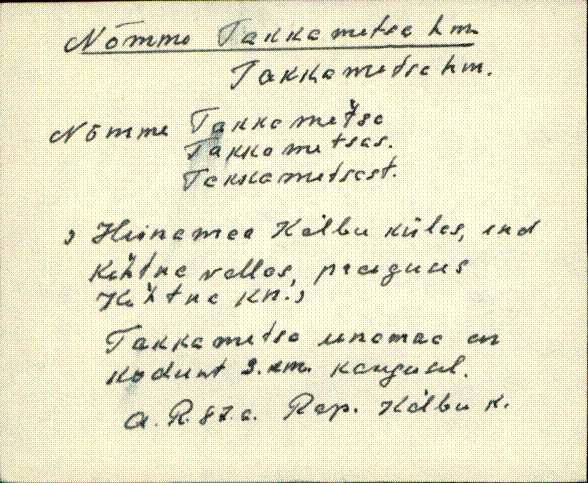 Nõmme Takkametsa hm.
Takkametsa hm.
Nõmme Takkametsa
Takkametsas.
Takkametsast.
, Heinamaa Kalbu külas, end
Kehtna vallas, praegusus
Kehtna kn.,
Takkametsa unamaa on
kodunt 3. km. kaugusel.
A. R. 87. a. Rap. Kalbu k.